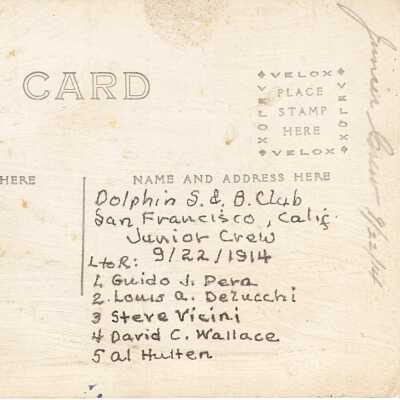 CARD
VELOX
VELOX PLACE VELOX
STAMP
HERE
VELOX
HERE
NAME AND ADDRESS HERE
Dolphin S. & B. Club
San Francisco, Calif.
Junior Crew
LtoR: 9/22/1914
1 Guido J. Pera
2. Louis A. DeZucchi
3 Steve Vicini
4 David C. Wallace
5 Al Hulten
Junior Crew 9/22/14